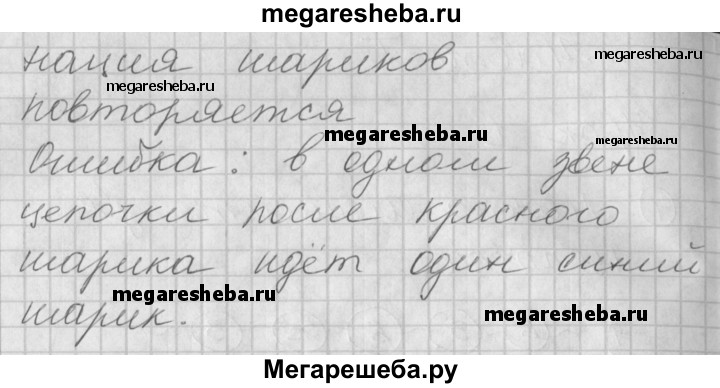 megaresheba.ru
нация шариков
megaresheba.ru
megaresheba.ru
повторяется
megaresheba.ru
megaresheba.ru
Ошибка: в одном звене
цепочки после красного
шарика идёт один синий
megaresheba.ru
шарик.
megaresheba.ru
Мегарешеба.ру